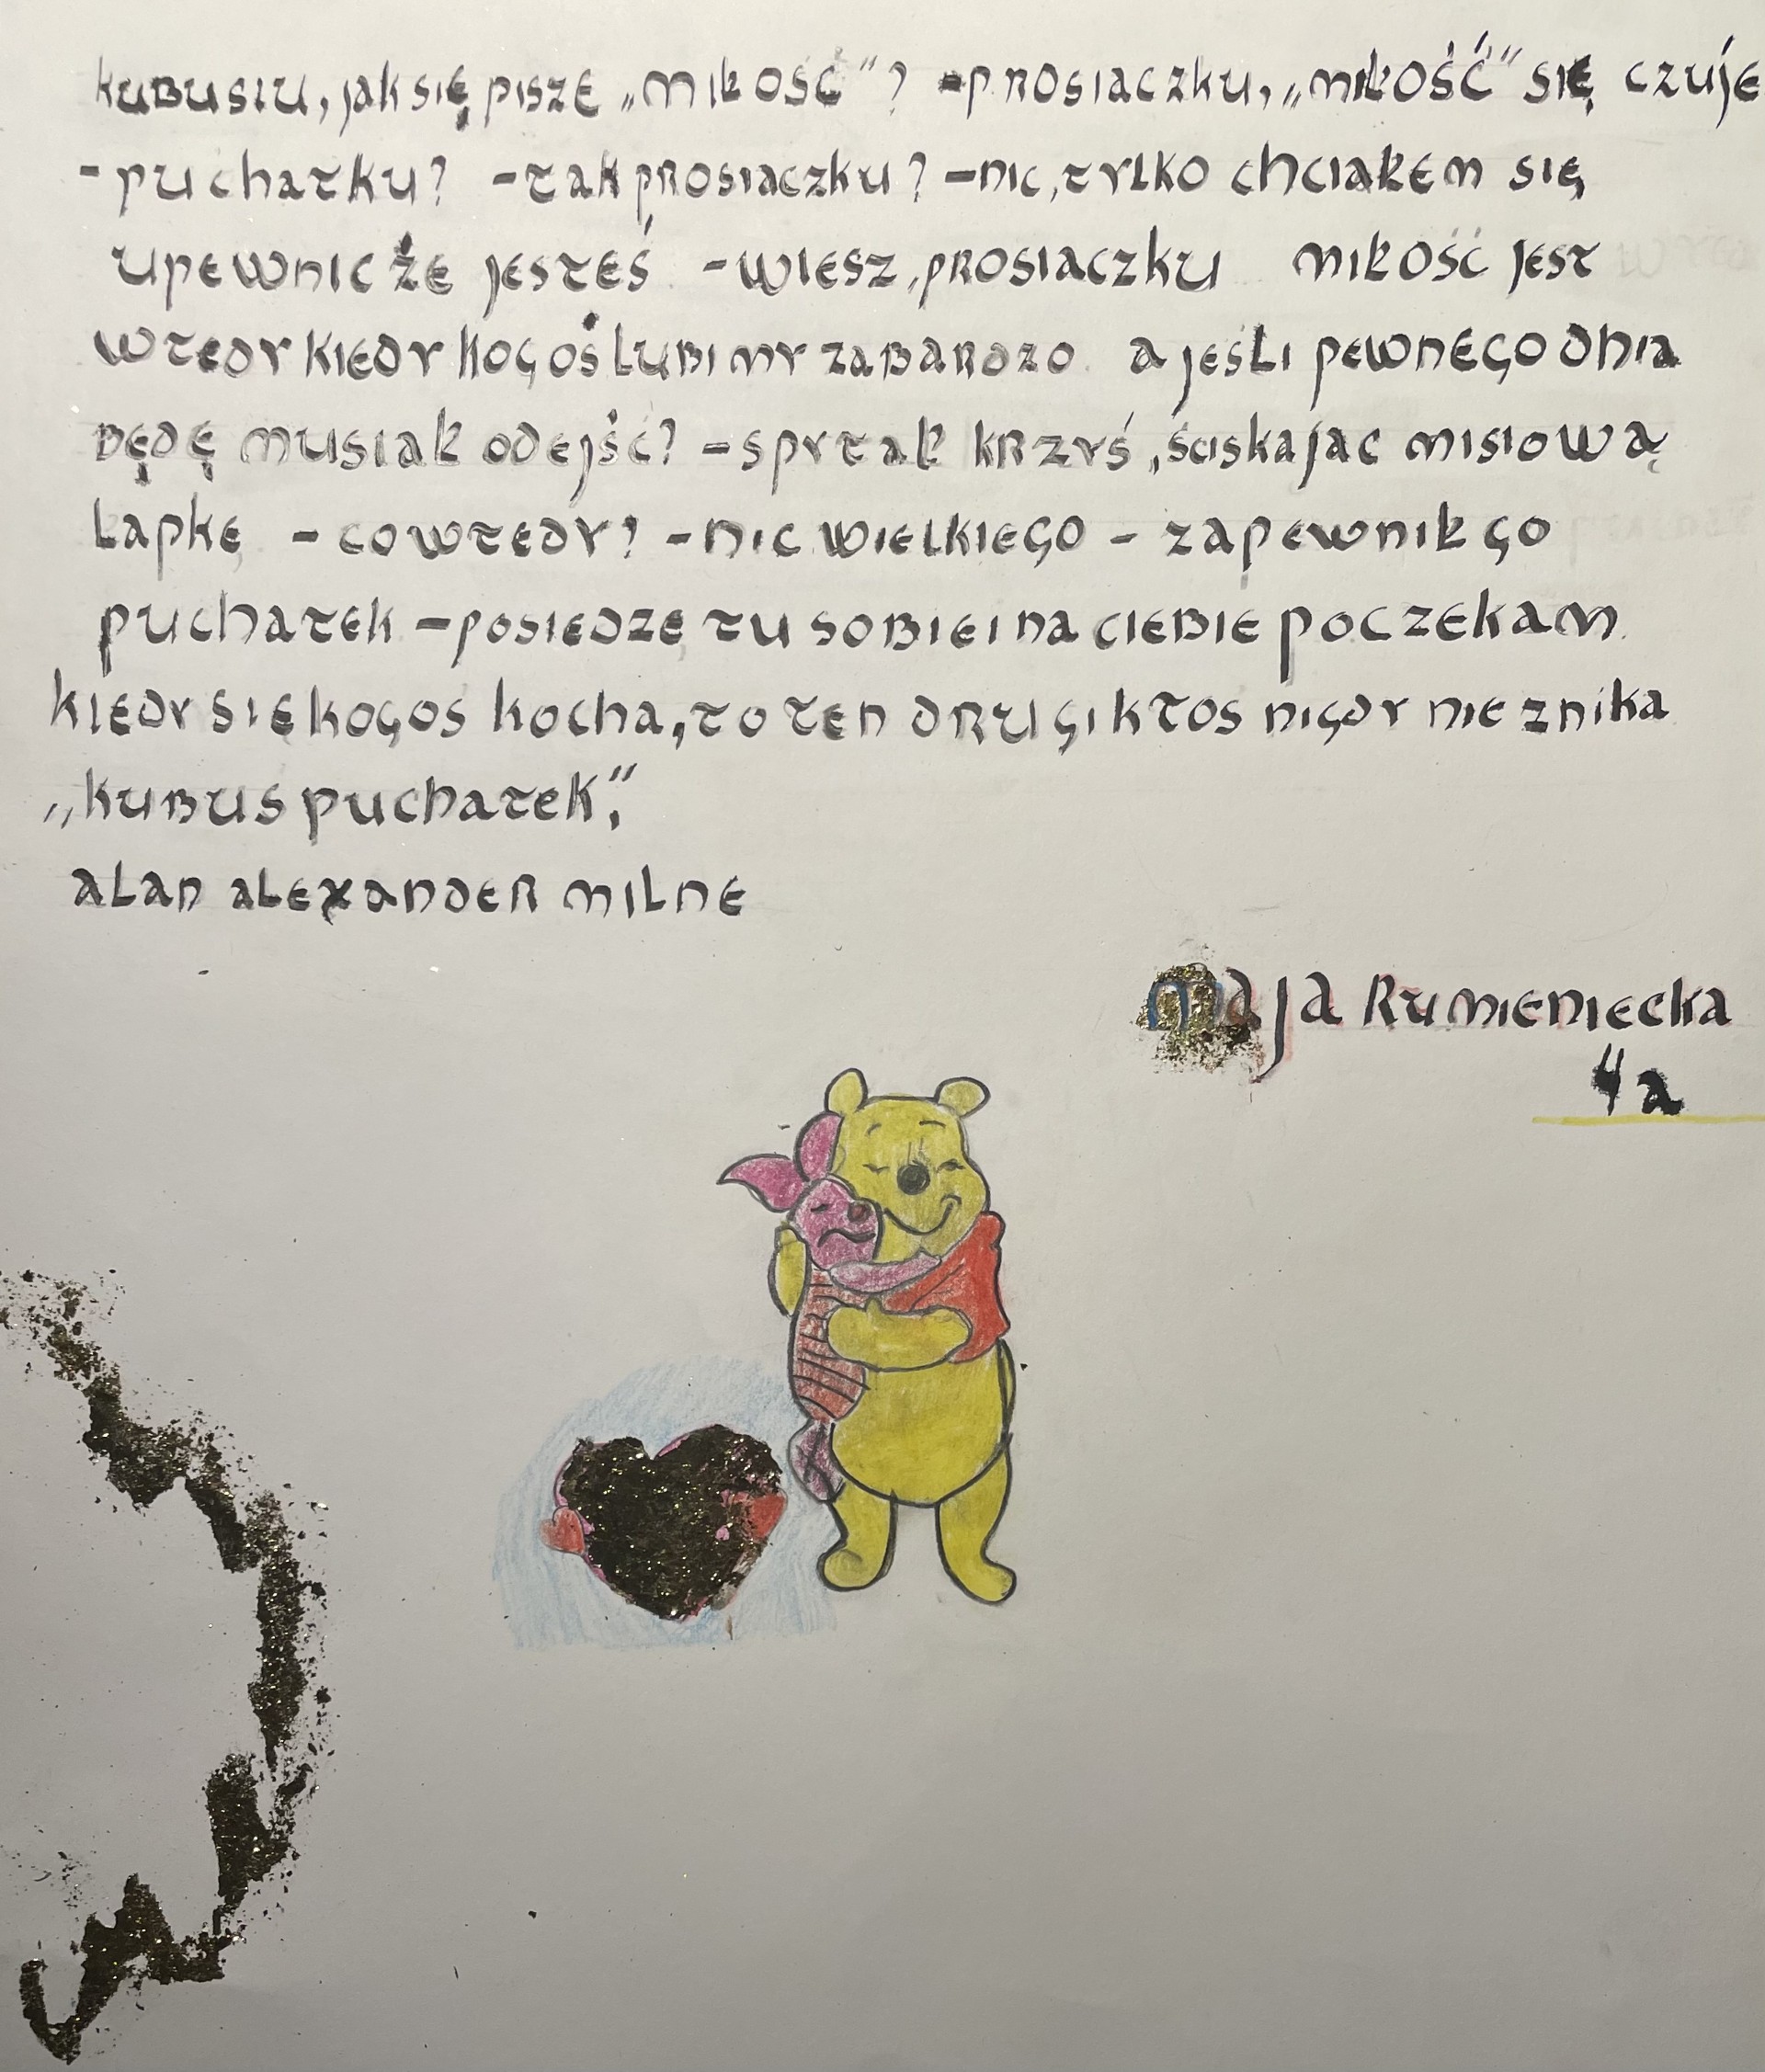 kubusiu, jak się pisze „miłość"? -prosiaczku, „miłość" się czuje
- puchatku? - tak prosiaczku? - nic, tylko chciałem się
upewnic że jesteś - wiesz, prosiaczku miłość jest
wtedy kiedy kogoś lubimy za bardzo. a jeśli pewnego dnia
będę musiał odejść? - spytał krzyś, ściskajac misiową
łapkę - co wtedy? - nic wielkiego - zapewnił go
puchatek - posiedzę tu sobie i na ciebie poczekam.
kiedy się kogos kocha, to ten drugi ktos nigdy nie znika
„kubus puchatek",
alan alexander milne
maja Rumieniecka
4a